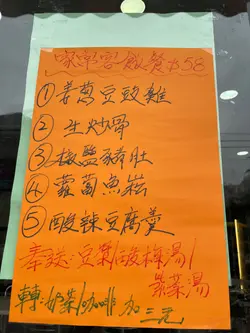 家常客飯餐$58
①薑蔥豆豉雞
②生炒骨
③椒鹽豬肚
④蘿蔔魚崧
⑤酸辣豆腐羹
奉送:豆漿/酸梅湯/
紫菜湯
轉:奶茶/咖啡 加三元